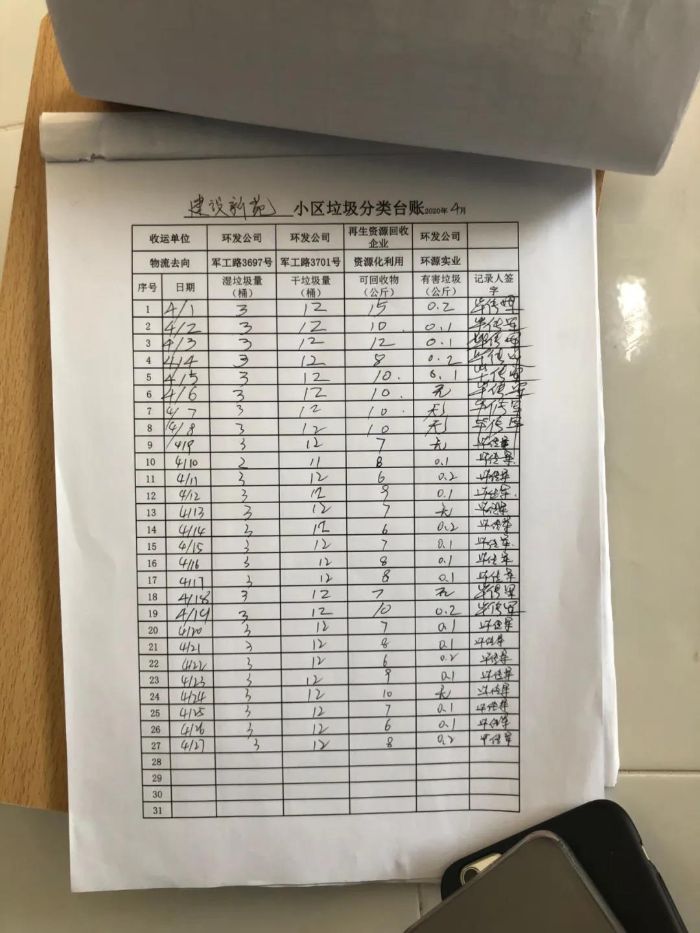 建设新苑 小区垃圾分类台账2020年4月
收运单位 环发公司 环发公司 再生资源回收企业 环发公司
物流去向 军工路3697号 军工路3701号 资源化利用 环源实业
序号 日期 湿垃圾量（桶） 干垃圾量（桶） 可回收物（公斤） 有害垃圾（公斤） 记录人签字
1 4/1 3 12 15 0.2
2 4/2 3 12 10. 0.1
3 4/3 3 12 12 0.1
4 4/4 3 12 8 0.2
5 4/5 3 12 10. 0.1
6 4/6 3 12 10. 无
7 4/7 3 12 10. 无
8 4/8 3 12 10 无
9 4/9 3 12 7 无
10 4/10 2 11 8 0.1
11 4/11 3 12 6 0.2
12 4/12 3 12 9 0.1
13 4/13 3 12 7 无
14 4/14 3 12 6 0.2
15 4/15 3 12 7 0.1
16 4/16 3 12 8 0.1
17 4/17 3 12 8 0.1
18 4/18 3 12 7 无
19 4/19 3 12 10 0.2
20 4/20 3 12 7 0.1
21 4/21 3 12 8 0.1
22 4/22 3 12 6 0.2
23 4/23 3 12 9 0.1
24 4/24 3 12 10 无
25 4/25 3 12 7 0.1
26 4/26 3 12 6 0.1
27 4/27 3 12 8 0.2
28
29
30
31